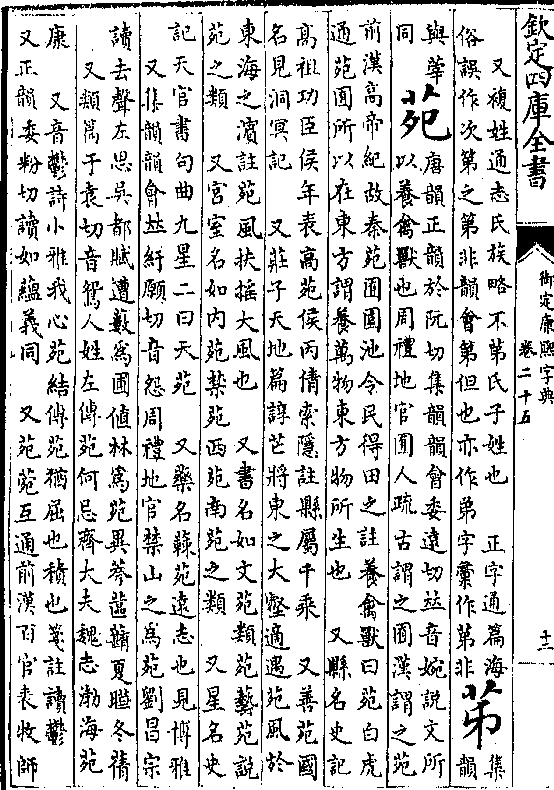 欽定四庫全書
御定康熙字典
卷二十五
十二
又複姓通志氏族略不第氏子姓也 正字通篇海
俗誤作次第之第非韻會第但也亦作弟字彙作第非
苐 集
韻
與荑
同
苑 唐韻正韻於阮切集韻韻會委遠切𠀤音婉說文所
以養禽獸也周禮地官囿人疏古謂之囿漢謂之苑
前漢高帝紀故秦苑囿園池令民得田之註養禽獸曰苑白虎
通苑囿所以在東方謂養萬物東方物所生也 又縣名史記
高祖功臣侯年表高苑侯丙倩索隱註縣屬千乘 又善苑國
名見洞冥記 又莊子天地篇諄芒將東之大壑適遇苑風於
東海之濱註苑風扶搖大風也 又書名如文苑類苑藝苑說
苑之類 又宮室名如內苑禁苑西苑南苑之類 又星名史
記天官書句曲九星二曰天苑 又藥名蕀苑遠志也見博雅
又集韻韻會𠀤紆願切音怨周禮地官禁山之爲苑劉昌宗
讀去聲左思吳都賦遭藪爲圃値林爲苑異荂蓲蘛夏曄冬蒨
又類篇于袁切音鴛人姓左傳苑何忌齊大夫魏志渤海苑
康 又音鬱詩小雅我心苑結傳苑猶屈也積也箋註讀鬱
又正韻委粉切讀如蘊義同 又苑菀互通前漢百官表牧師